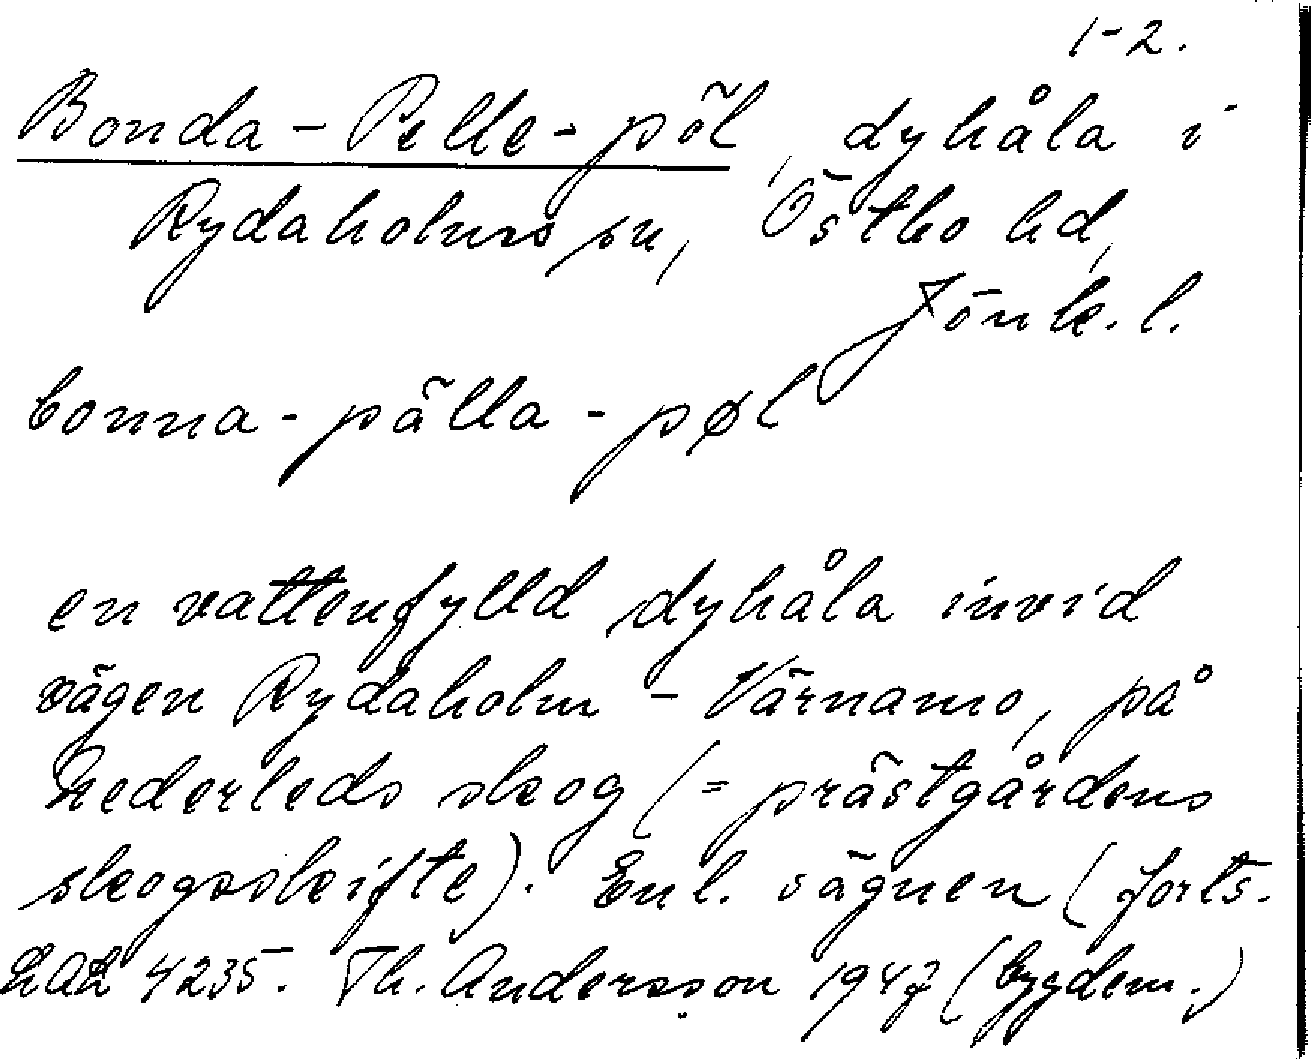 1-2.
Bonda-Pelle-pöl, dyhåla i
Rydaholms sn, Östbo hd,
Jönk.l.
bonna-pälla-pøl
en vattenfylld dyhåla invid
vägen Rydaholm - Värnamo, på
Nederleds skog (= prästgårdens
skogsskifte). Enl. sägnen (forts.
LAL 4235. Th. Andersson 1947 (bygdem.)